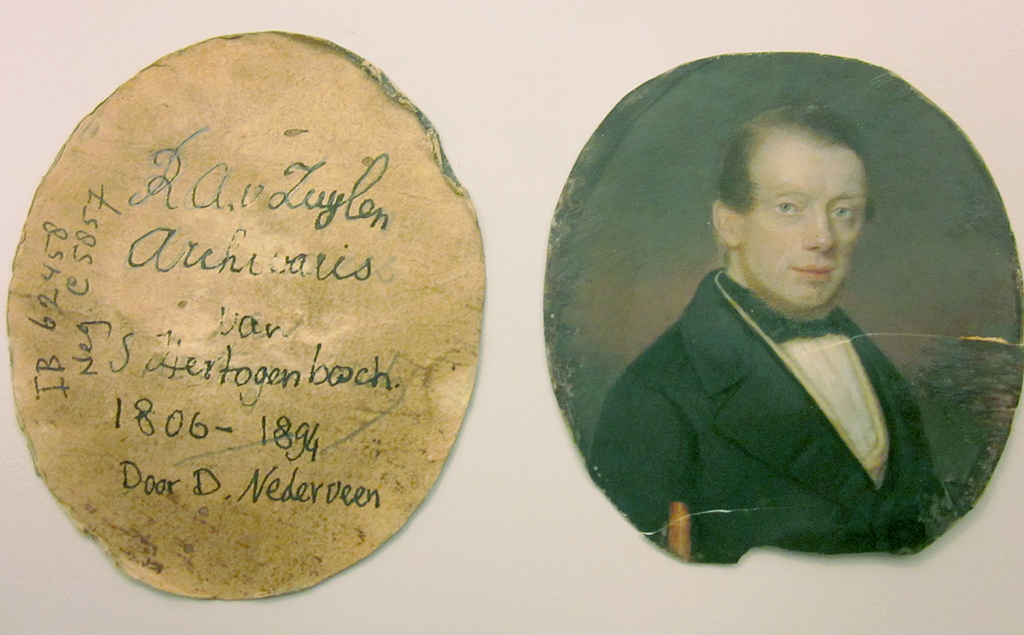 R A. v Zuylen
Archivaris
van
S Hertogenbosch.
1806 - 1894
Door D. Nederveen
IB 62458
Neg. C 5857